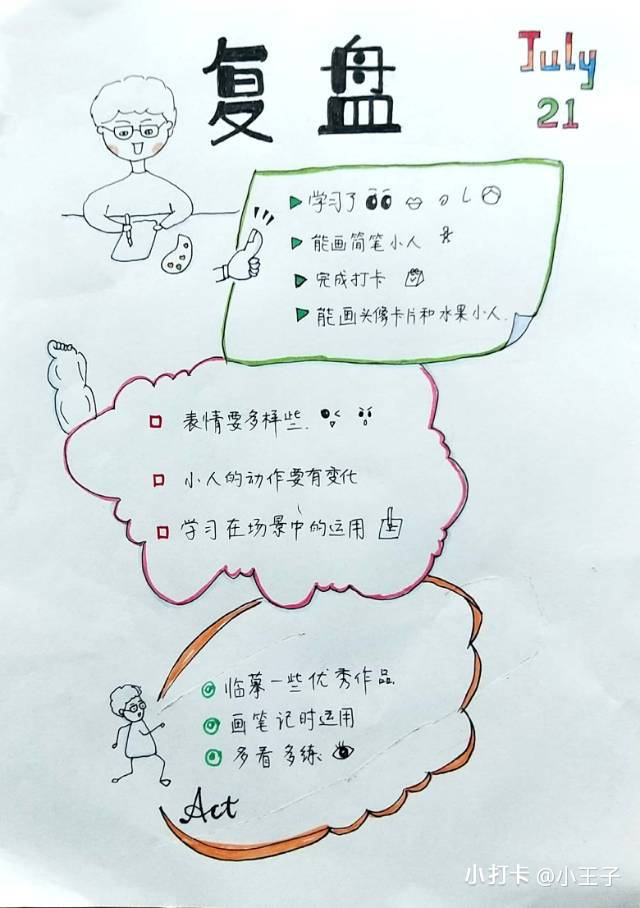 复盘
July
21
学习了
能画简笔小人
完成打卡
能画头像卡片和水果小人.
表情要多样些.
小人的动作要有变化
学习在场景中的运用
临摹一些优秀作品
画笔记时运用
多看多练
Act
小打卡 @小王子